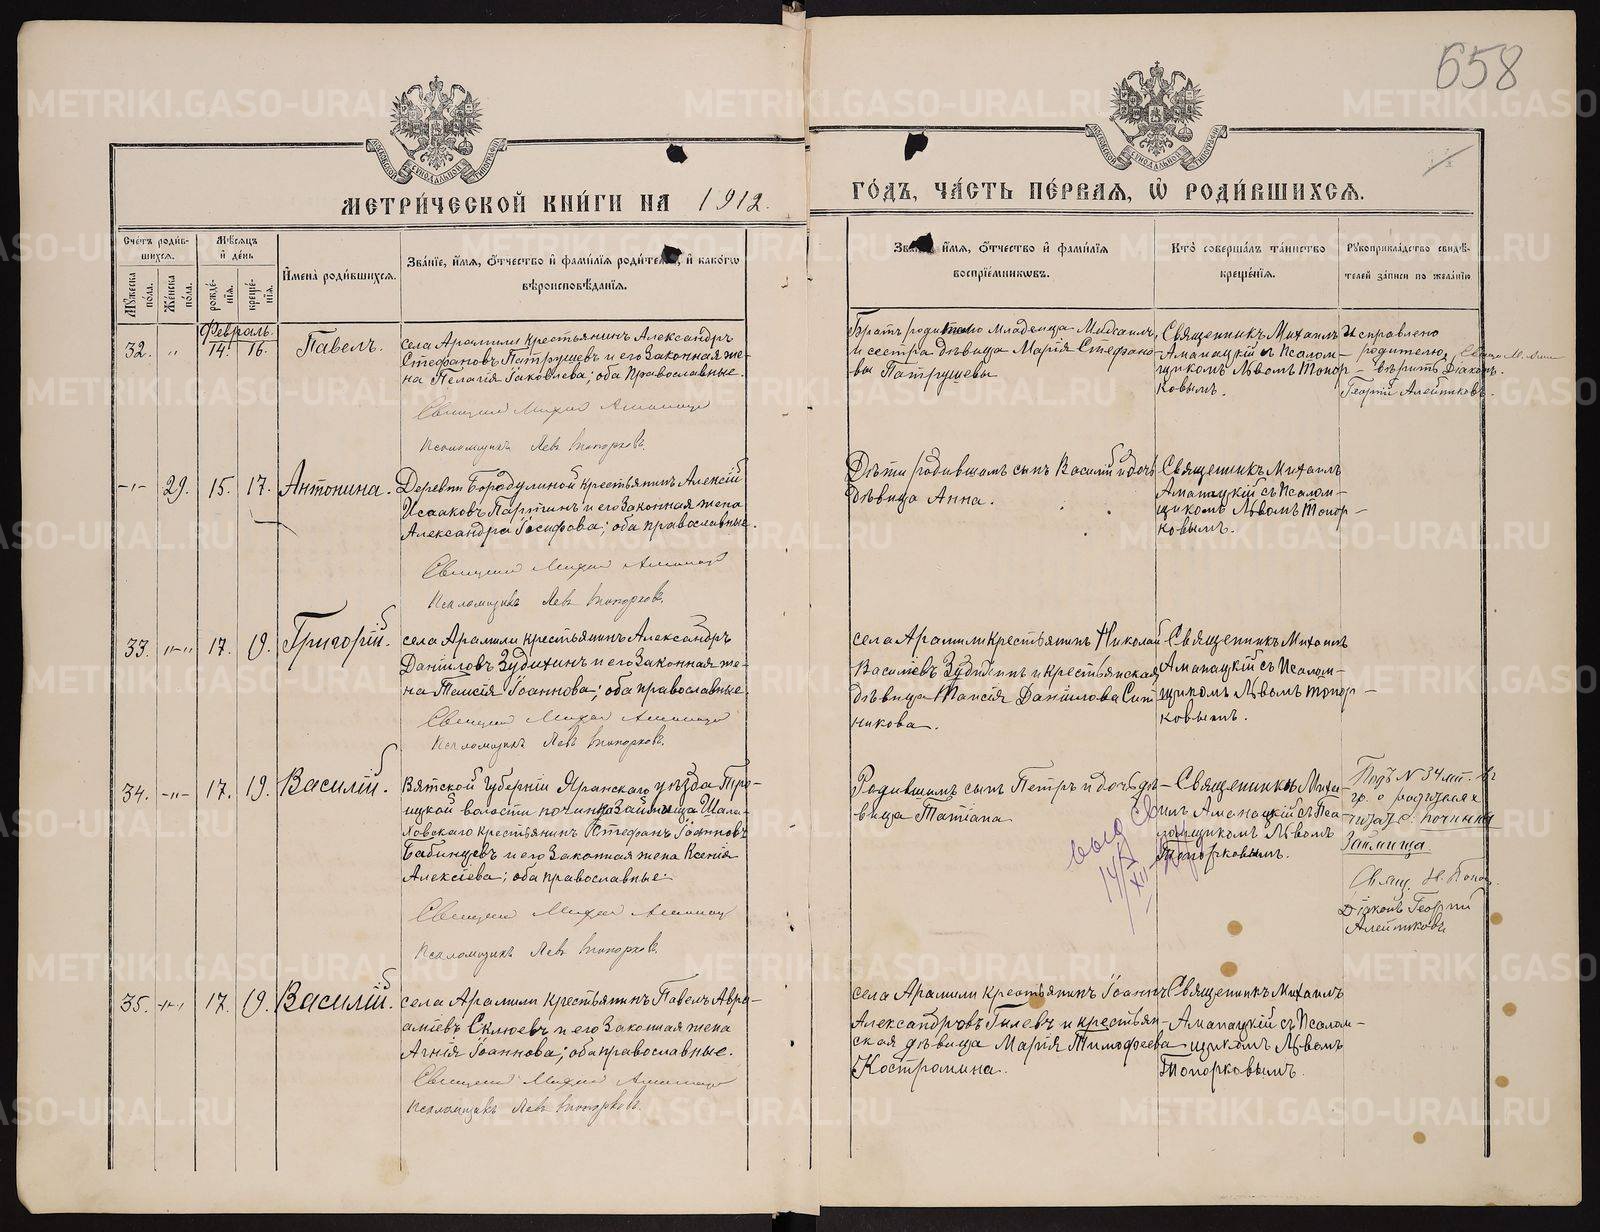 658
МЕТРИ́ЧЕСКОЙ КНИ́ГИ НА 1912.
ГО́ДЪ, ЧА́СТЬ ПЕ́РВАЯ, Ѡ҆ РОДИ́ВШИХСЯ.
Сче́тъ роди́в-
шихся.
Мѣ́сяцъ
и҆ де́нь
Мꙋ́жеска по́ла.
Же́нска по́ла.
рожде́-
нїя.
креще́-
нїя.
И҆мена̀ роди́вшихся.
Зва́нїе, и҆́мя, ѻ҆́тчество и҆ фамилїя роди́телей, и҆ како́гѡ
вѣроисповѣ́данїя.
и҆́мя, ѻ҆́тчество и҆ фами́лїя
воспрїе́мниковъ.
Кто̀ соверша́лъ та́инство
креще́нїя.
Рꙋкоприкла́дство свидѣ́-
телей за́писи по жела́нїю
Февраль.
32. " 14. 16. Павелъ.
села Арамили крестьянинъ Александръ
Стефановъ Патрушевъ и его законная же-
на Пелагія Іаковлева; оба православные.
Псаломщикъ Левъ Топорковъ.
Братъ родителю младенца Михаилъ
и сестра дѣвица Марія Стефано-
вы Патрушевы
Священникъ Михаилъ
Аманацкій съ Псалом-
щикомъ Львомъ Топор-
ковымъ.
Исправлено
родителю
вѣрить Діаконъ.
Георгій Алейниковъ.
-"- 29. 15. 17. Антонина.
Деревни Бородулиной крестьянинъ Алексій
Исааковъ Паргинъ и его законная жена
Александра Іосифова; оба православные.
Псаломщикъ Левъ Топорковъ.
Дѣти родившимъ сынъ Василій и дочь
дѣвица Анна.
Священникъ Михаилъ
Аманацкій съ Псалом-
щикомъ Львомъ Топор-
ковымъ.
33. "-" 17. 19. Григорій.
села Арамили крестьянинъ Александръ
Даніиловъ Зудихинъ и его законная же-
на Таисія Іоаннова; оба православные.
Псаломщикъ Левъ Топорковъ.
села Арамили крестьянинъ Николай
Васильевъ Зудихинъ и крестьянская
дѣвица Таисія Даніилова Сит-
никова.
Священникъ Михаилъ
Аманацкій съ Псалом-
щикомъ Львомъ Топор-
ковымъ.
34. -"- 17. 19. Василій.
Вятской Губерніи Яранскаго уѣзда Тро-
ицкой волости починка Займища Шала-
ховскаго крестьянинъ Стефанъ Іоанновъ
Бабинцевъ и его законная жена Ксенія
Алексіева; оба православные.
Псаломщикъ Левъ Топорковъ.
Родившимъ сынъ Петръ и дочь дѣ-
вица Татіана
Священникъ Миха-
илъ Аманацкій съ Пса-
ломщикомъ Львомъ
Топорковымъ.
Подъ N 34 въ
гр. о родителях
читать: починка
Займища.
Свящ. Н. Попов
Діаконъ Георгій
Алейниковъ
35. -"- 17. 19. Василій.
села Арамили крестьянинъ Павелъ Авра-
аміевъ Склюевъ и его законная жена
Агнія Іоаннова; оба православные.
Псаломщикъ Левъ Топорковъ.
села Арамили крестьянинъ Іоаннъ
Александровъ Гилевъ и крестьян-
ская дѣвица Марія Тимофеева
Костромина.
Священникъ Михаилъ
Аманацкій съ Псалом-
щикомъ Львомъ
Топорковымъ.
METRIKI.GASO-URAL.RU